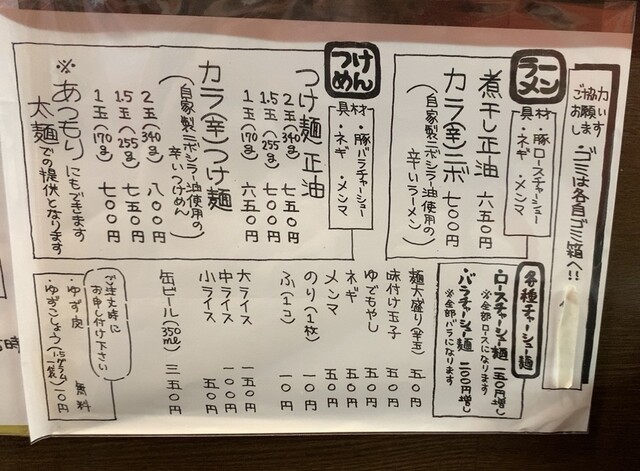 ご協力お願いします
・ゴミは各自ゴミ箱へ!!
ラーメン
具材
・豚ロースチャーシュー
・ネギ ・メンマ
煮干し正油 六五〇円
カラ(辛)ニボ 七〇〇円
(自家製ニボシラー油使用の
辛いラーメン)
つけめん
具材
・豚バラチャーシュー
・ネギ ・メンマ
つけ麺正油
2玉(340g) 七五〇円
1.5玉(255g) 七〇〇円
1玉(170g) 六五〇円
カラ(辛)つけ麺
(自家製ニボシラー油使用の
辛いつけめん)
2玉(340g) 八〇〇円
1.5玉(255g) 七五〇円
1玉(170g) 七〇〇円
※あつもりにもできます
太麺での提供となります
各種チャーシュー麺
・ロースチャーシュー麺 二五〇円増し
※全部ロースになります
・バラチャーシュー麺 二〇〇円増し
※全部バラになります
麺大盛り(半玉) 五〇円
味付け玉子 五〇円
ゆでもやし 五〇円
ネギ 五〇円
メンマ 五〇円
のり(1枚) 一〇円
ふ(1コ) 一〇円
大ライス 一五〇円
中ライス 一〇〇円
小ライス 五〇円
缶ビール(350ml) 三五〇円
ご注文時に
お申し付け下さい
・ゆず皮 無料
・ゆずこしょう(1.5グラム一袋) 一〇円